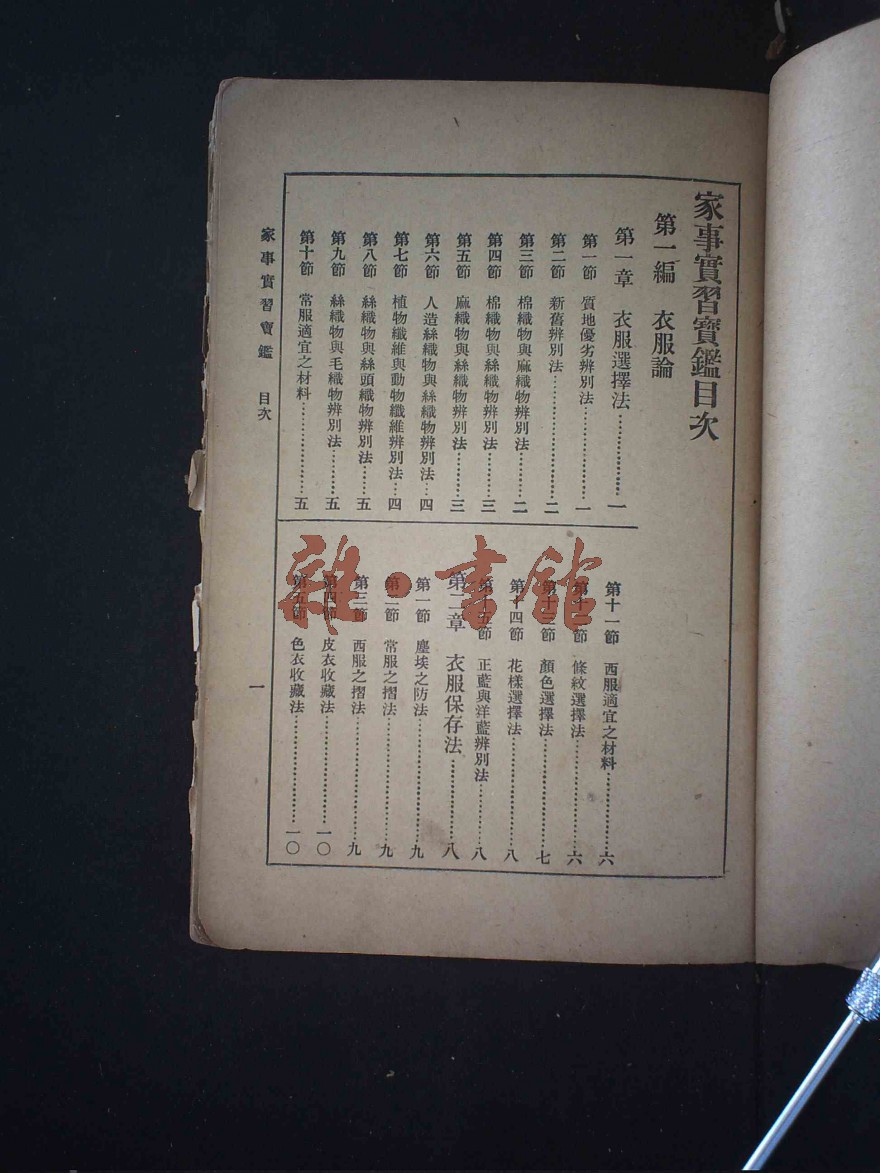 家事實習寶鑑目次
第一編　衣服論
第一章　衣服選擇法…………一
第一節　質地優劣辨別法…………一
第二節　新舊辨別法…………二
第三節　棉織物與麻織物辨別法…………二
第四節　棉織物與絲織物辨別法…………三
第五節　麻織物與絲織物辨別法…………三
第六節　人造絲織物與絲織物辨別法…四
第七節　植物纖維與動物纖維辨別法…四
第八節　絲織物與絲頭織物辨別法……五
第九節　絲織物與毛織物辨別法………五
第十節　常服適宜之材料…………五
第十一節　西服適宜之材料…………六
第十二節　條紋選擇法…………六
第十三節　顏色選擇法…………七
第十四節　花樣選擇法…………八
第十五節　正藍與洋藍辨別法…………八
第二章　衣服保存法…………八
第一節　塵埃之防法…………九
第二節　常服之摺法…………九
第三節　西服之摺法…………九
第四節　皮衣收藏法…………一〇
第五節　色衣收藏法…………一〇
家事實習寶鑑　目次
一
雜·書館